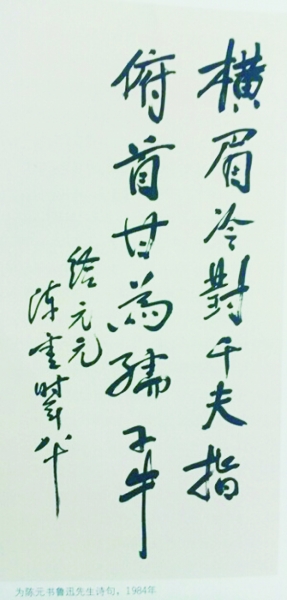 横眉冷對千夫指
俯首甘為孺子牛
给元元
陈雲时年八十
为陈元书鲁迅先生诗句，1984年